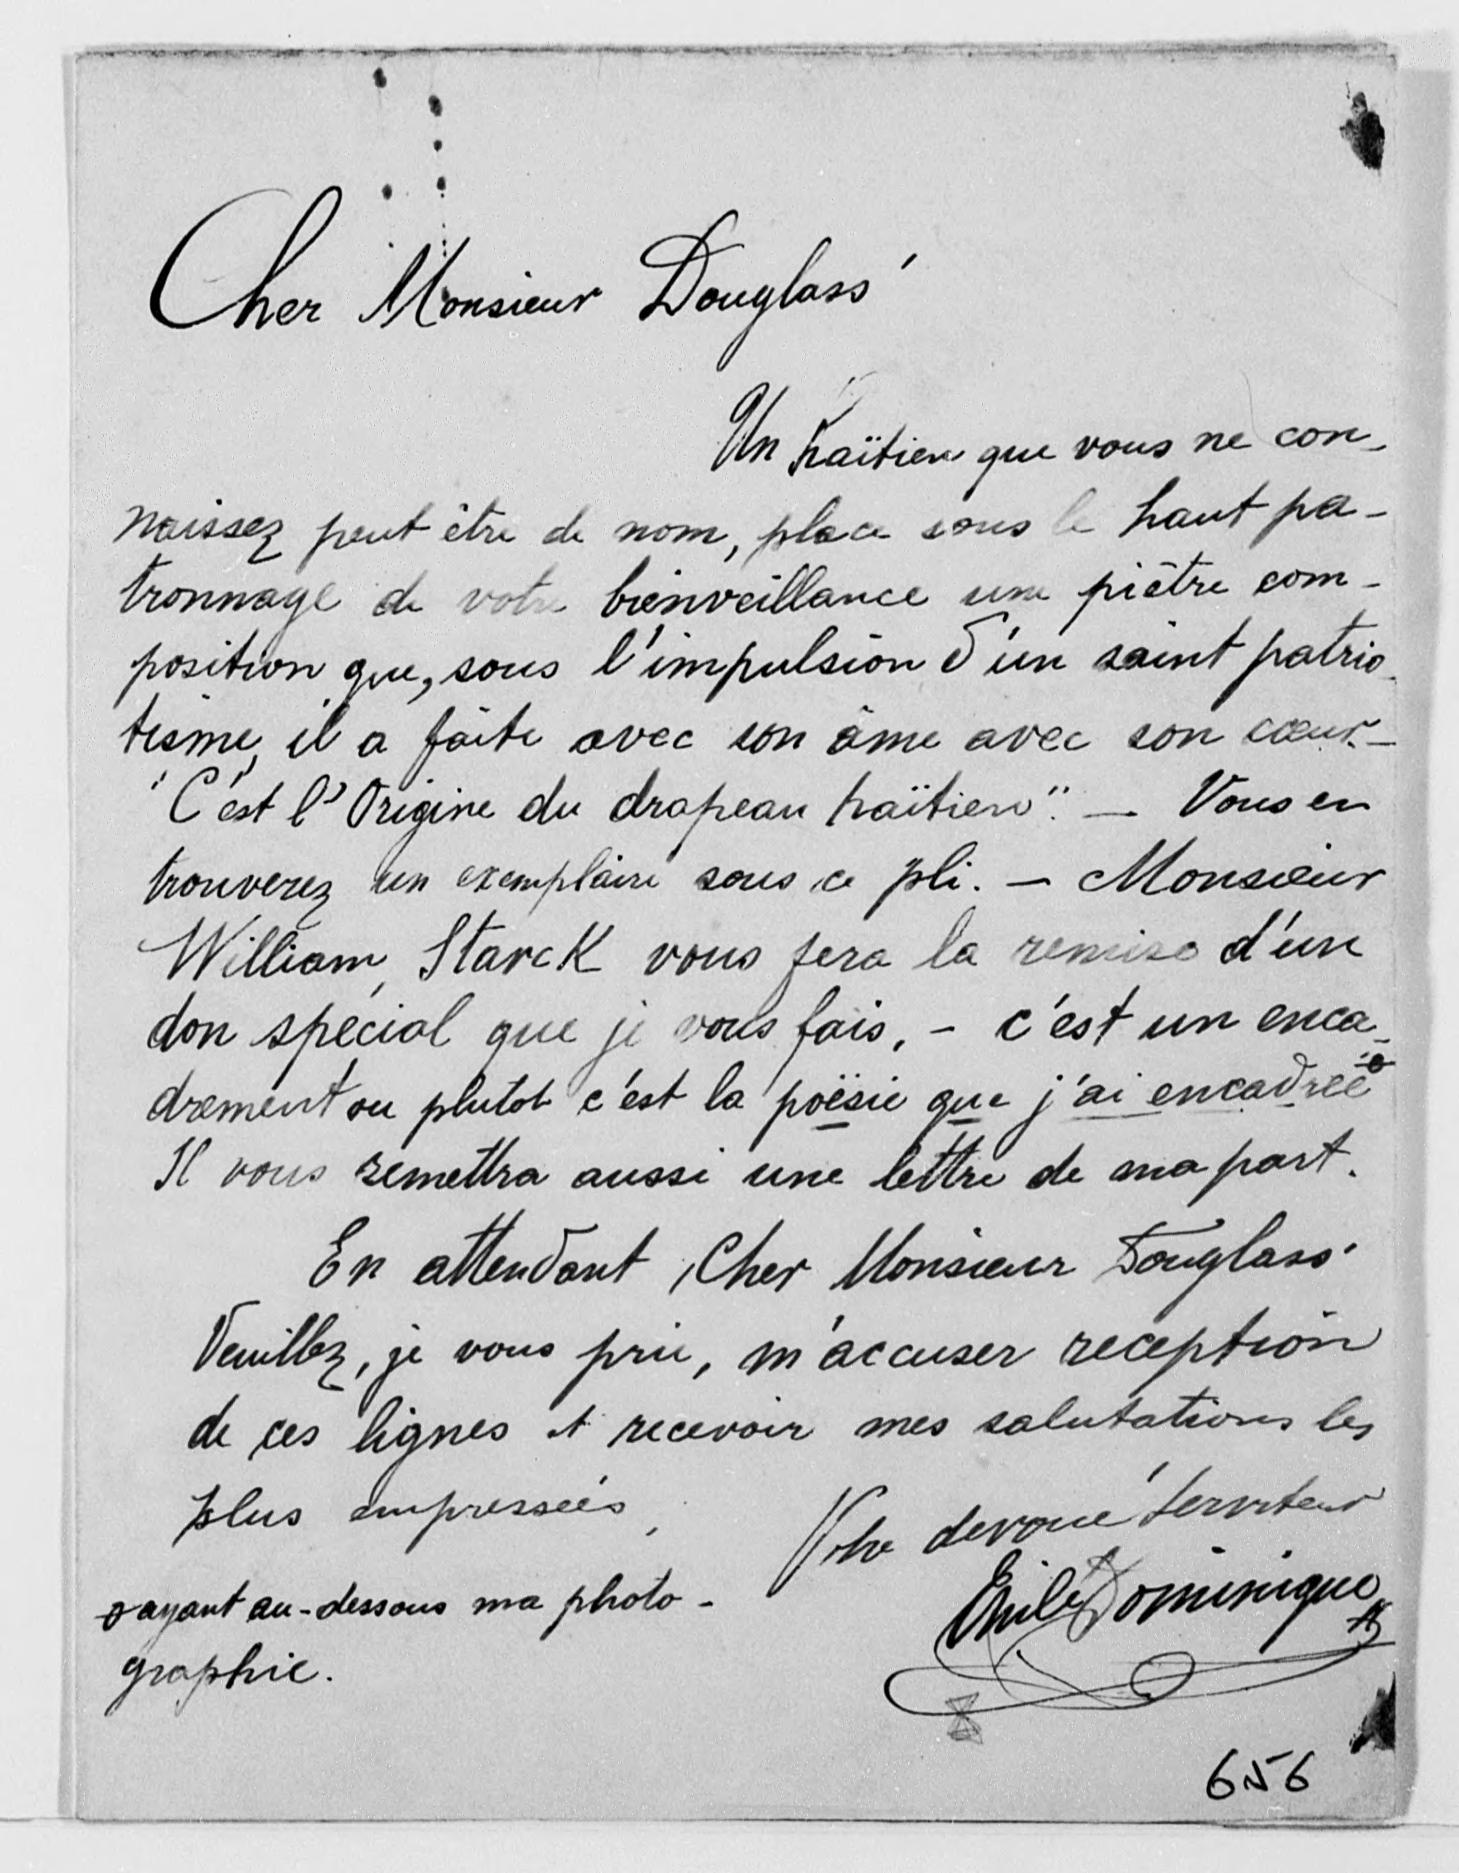 Cher Monsieur Douglass
Un haïtien que vous ne con-
naissez peut être de nom, place sous le haut pa-
tronnage de votre bienveillance une piètre com-
position que, sous l'impulsion d'un saint patrio-
tisme, il a faite avec son âme avec son cœur. —
"C'est l'Origine du drapeau haïtien". — Vous en
trouverez un exemplaire sous ce pli. — Monsieur
William Starck vous fera la remise d'un
don spécial que je vous fais, — c'est un enca-
drement ou plutot c'est la poësie que j'ai encadrée ø
Il vous remettra aussi une lettre de ma part.
En attendant, Cher Monsieur Douglass
Veuillez, je vous prie, m'accuser reception
de ces lignes et recevoir mes salutations les
plus empressées,
Votre devoué serviteur
Emile Dominique
ø ayant au-dessous ma photo-
graphie.
656